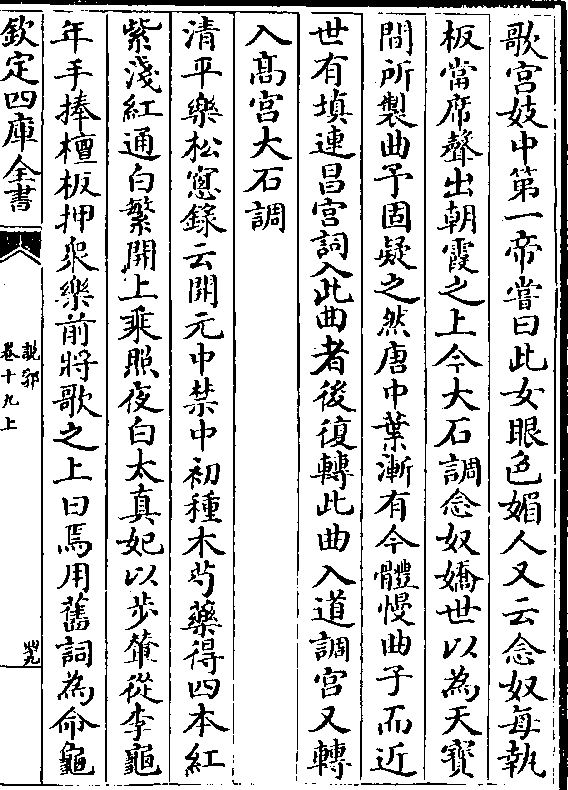 歌宫妓中第一帝嘗曰此女眼色媚人又云念奴每執
板當席聲出朝霞之上今大石調念奴嬌世以為天寶
間所製曲予固疑之然唐中葉漸有今體慢曲子而近
世有填連昌宫詞入此曲者後復轉此曲入道調宫又轉
入髙宫大石調
清平樂松窻錄云開元中禁中初種木芍藥得四本紅
紫淺紅通白繁開上乘照夜白太真妃以步輦從李龜
年手捧檀板押衆樂前將歌之上曰焉用舊詞為命龜
欽定四庫全書
說郛
卷十九上